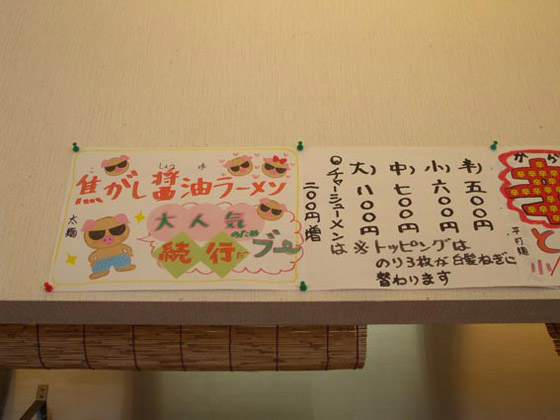 こ しょう ゆ
焦がし醤油ラーメン
太麺
大人気
のため
続行だブー
半)五〇〇円
小)六〇〇円
中)七〇〇円
大)八〇〇円
◎チャーシューメンは
二〇〇円増
※トッピングは
のり3枚が白髪ねぎに
替わります
から
辛辛辛
と
平打麺
小